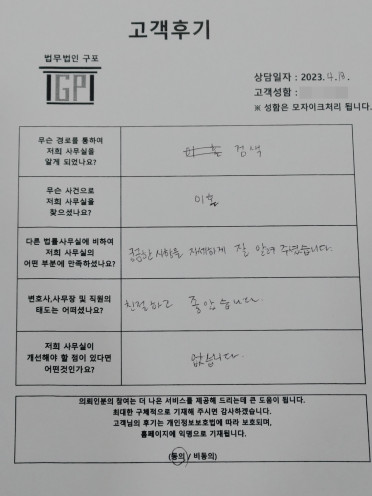 고객후기
법무법인 구포
GP
상담일자 : 2023. 4. 13.
고객성함 :
※ 성함은 모자이크처리 됩니다.
무슨 경로를 통하여
저희 사무실을
알게 되었나요?
검색
무슨 사건으로
저희 사무실을
찾으셨나요?
이혼
다른 법률사무실에 비하여
저희 사무실의
어떤 부분에 만족하셨나요?
궁금한 사항을 자세하게 잘 알려 주셨습니다.
변호사,사무장 및 직원의
태도는 어떠셨나요?
친절하고 좋았습니다.
저희 사무실이
개선해야 할 점이 있다면
어떤것인가요?
없습니다.
의뢰인분의 참여는 더 나은 서비스를 제공해 드리는데 큰 도움이 됩니다.
최대한 구체적으로 기재해 주시면 감사하겠습니다.
고객님의 후기는 개인정보보호법에 따라 보호되며,
홈페이지에 익명으로 기재됩니다.
(동의 / 비동의)